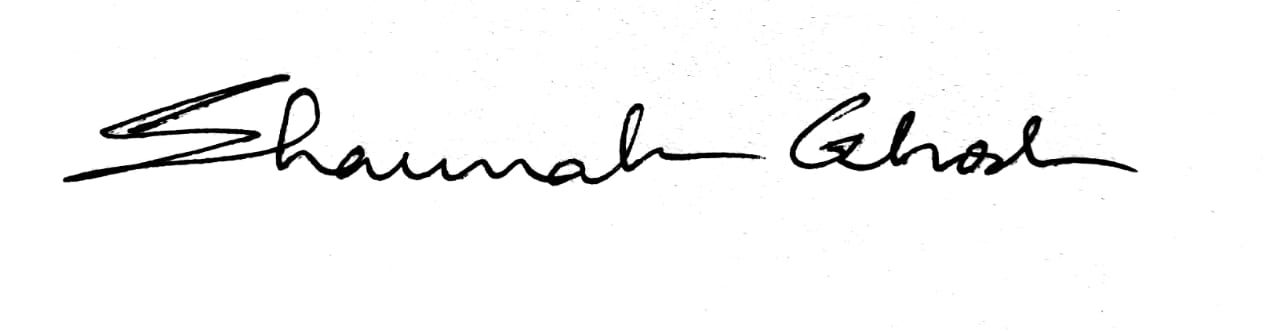 Shaunak Ghosh